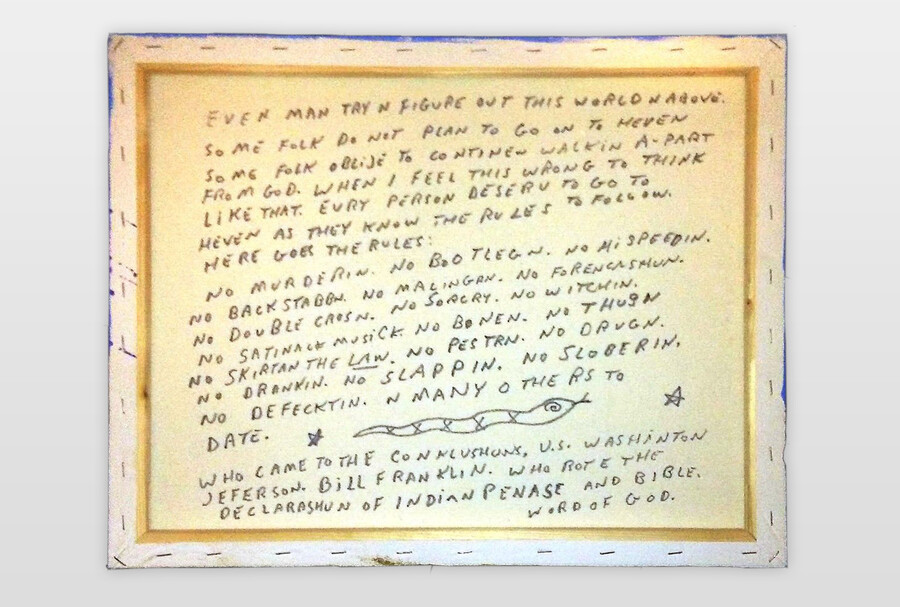 EVEN MAN TRY N FIGURE OUT THIS WORLD N ABOVE.
SOME FOLK DO NOT PLAN TO GO ON TO HEVEN
SOME FOLK OBLIJE TO CONTINEW WALKIN A-PART
FROM GOD. WHEN I FEEL THIS WRONG TO THINK
LIKE THAT. EVRY PERSON DESERV TO GO TO
HEVEN AS THEY KNOW THE RULES TO FOLLOW.
HERE GOES THE RULES:
NO MURDERIN. NO BOOTLEGN. NO MISPEEDIN.
NO BACKSTABBN. NO MALINGRN. NO FORENCASHUN.
NO DOUBLE CROSN. NO SORCRY. NO WITCHIN.
NO SATINACK MUSICK. NO BONEN. NO THUGN
NO SKIRTAN THE LAW. NO PESTRN. NO DRUGN.
NO DRANKIN. NO SLAPPIN. NO SLOBERIN.
NO DEFECKTIN. N MANY OTHERS TO
DATE.
WHO CAME TO THE CONKLUSHUNS, U.S. WASHINTON
JEFERSON. BILL FRANKLIN. WHO ROTE THE
DECLARASHUN OF INDIAN PENASE AND BIBLE.
WORD OF GOD.